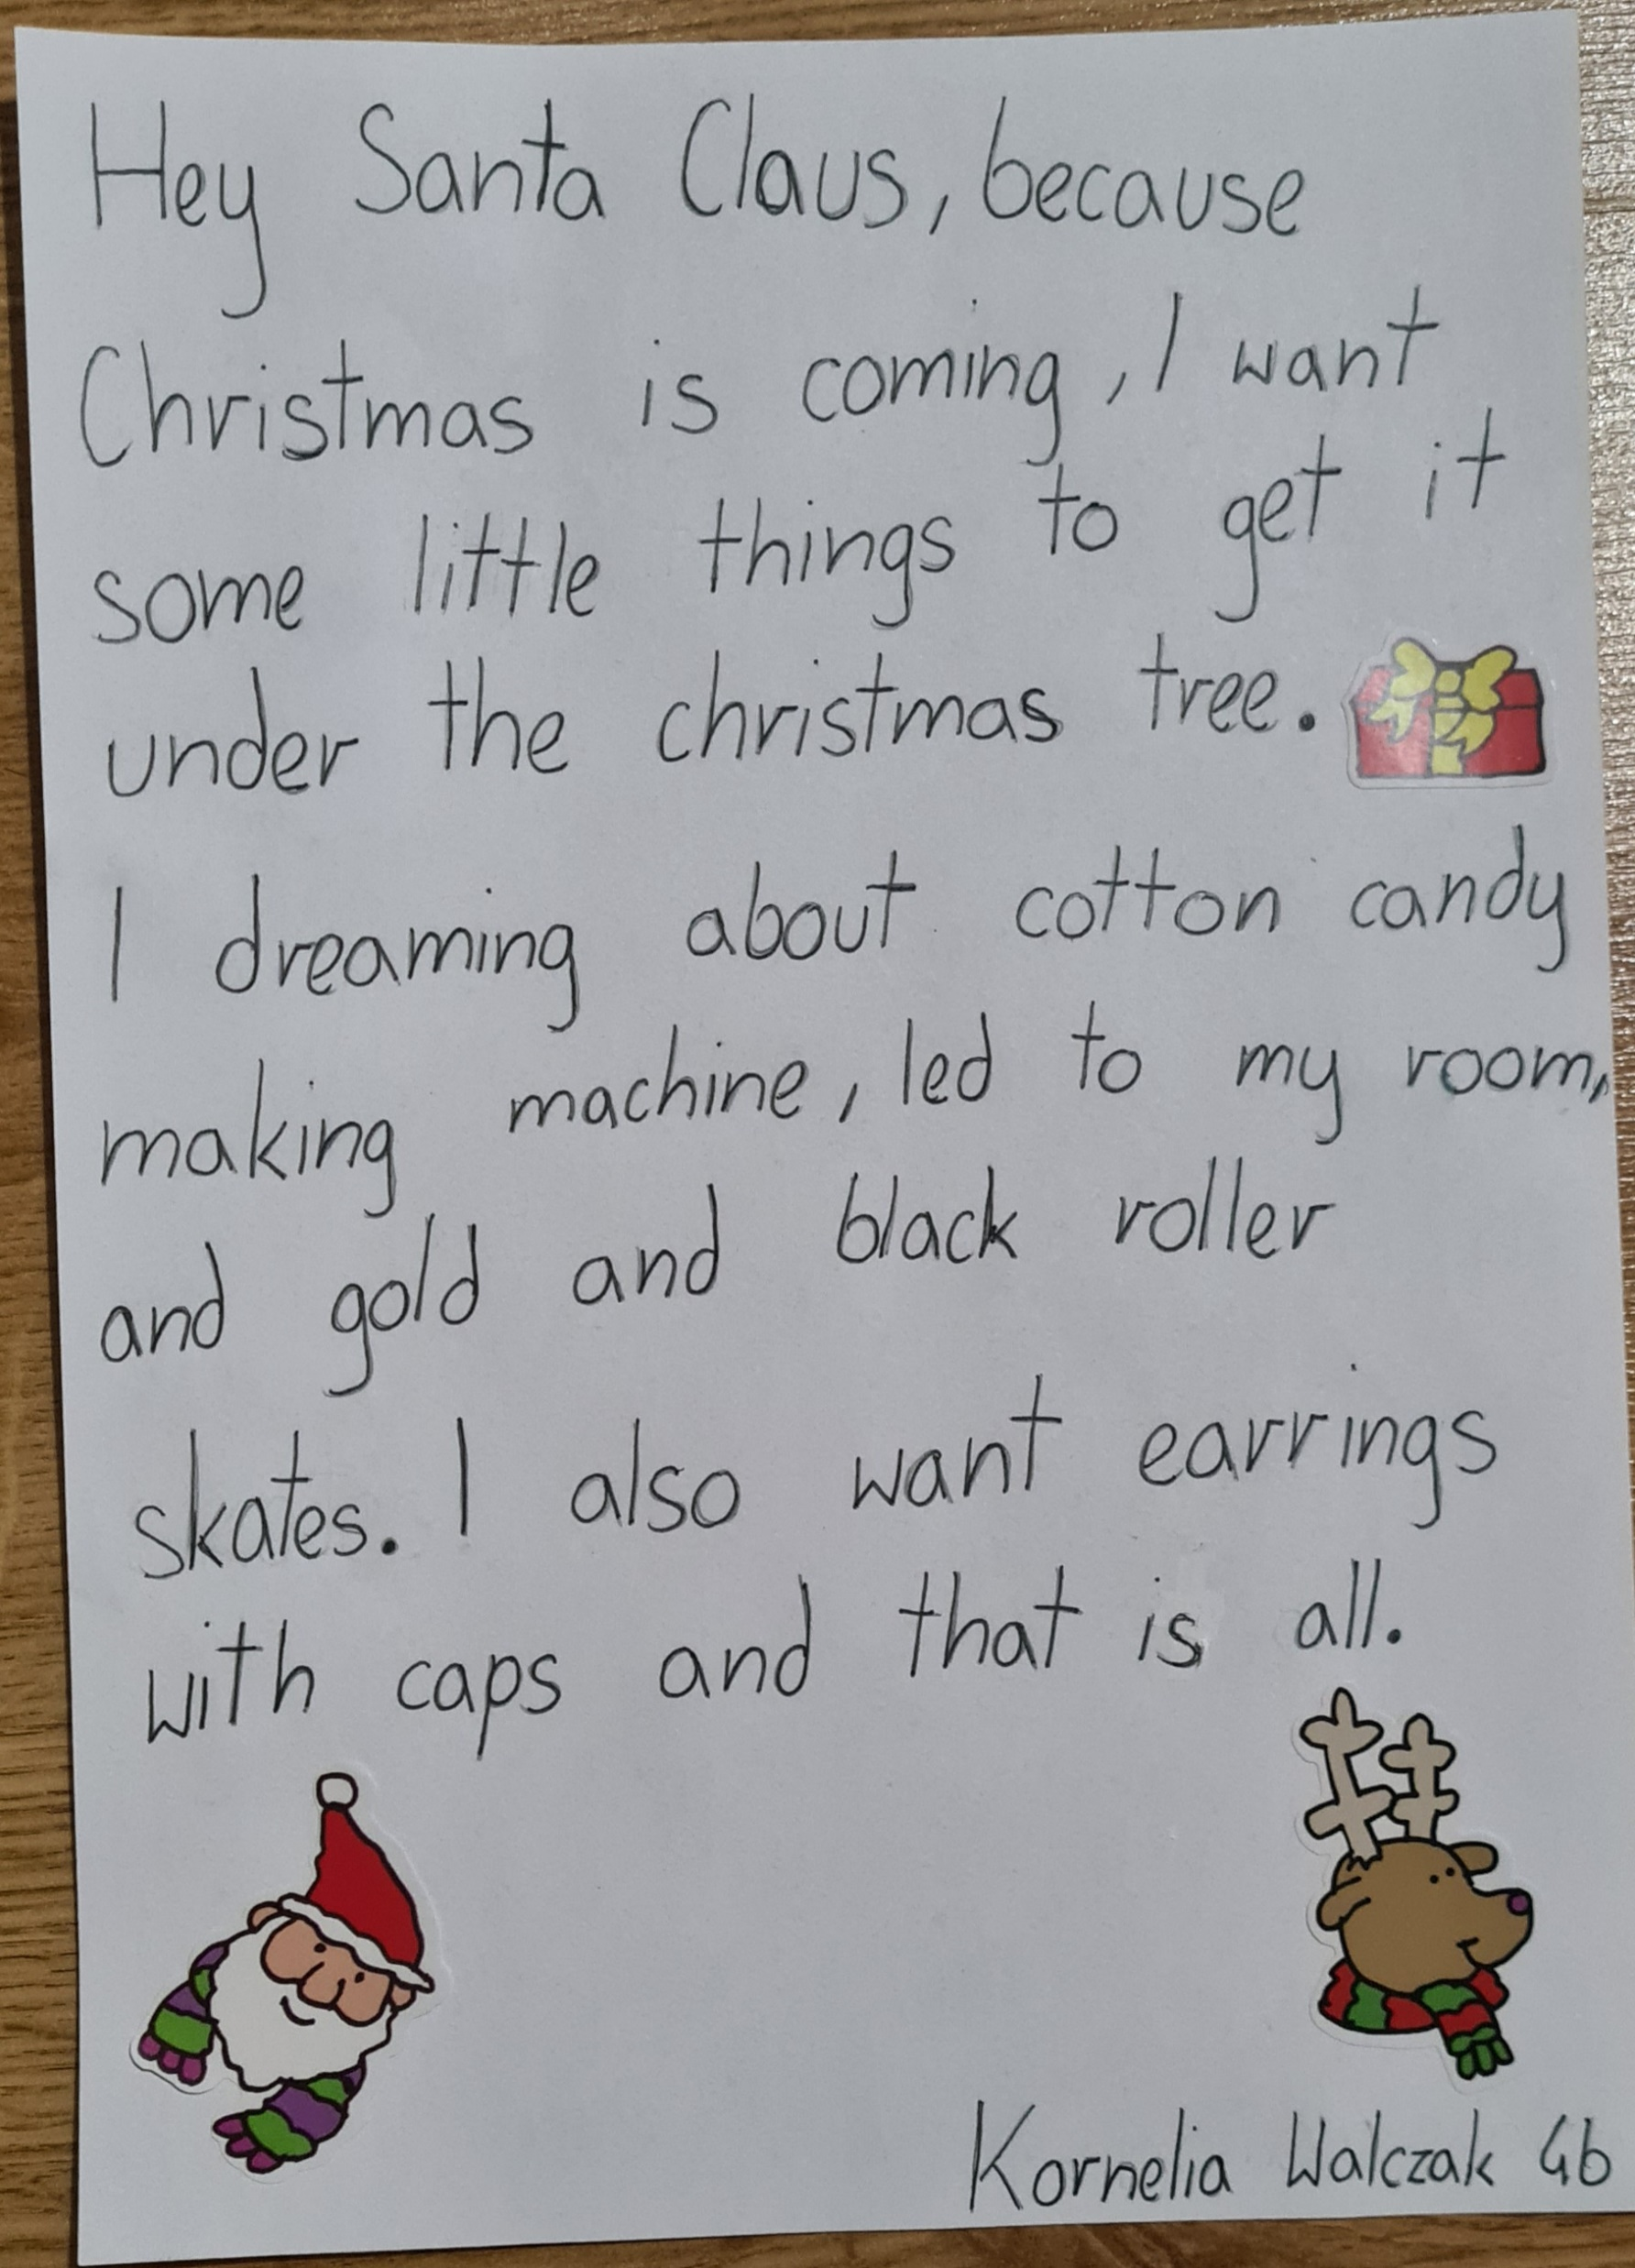 Hey Santa Claus, because
Christmas is coming, I want
some little things to get it
under the christmas tree.
I dreaming about cotton candy
making machine, led to my room,
and gold and black roller
skates. I also want earrings
with caps and that is all.
Kornelia Walczak 4b